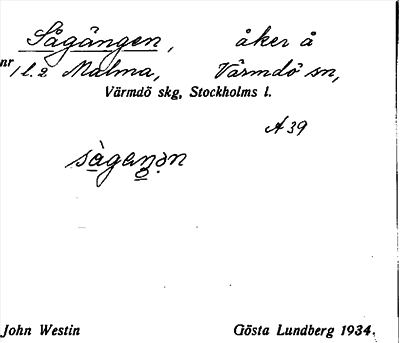 Sågängen, åker å
nr 1 l. 2 Malma, Värmdö sn,
Värmdö skg, Stockholms l.
A 39
John Westin Gösta Lundberg 1934.